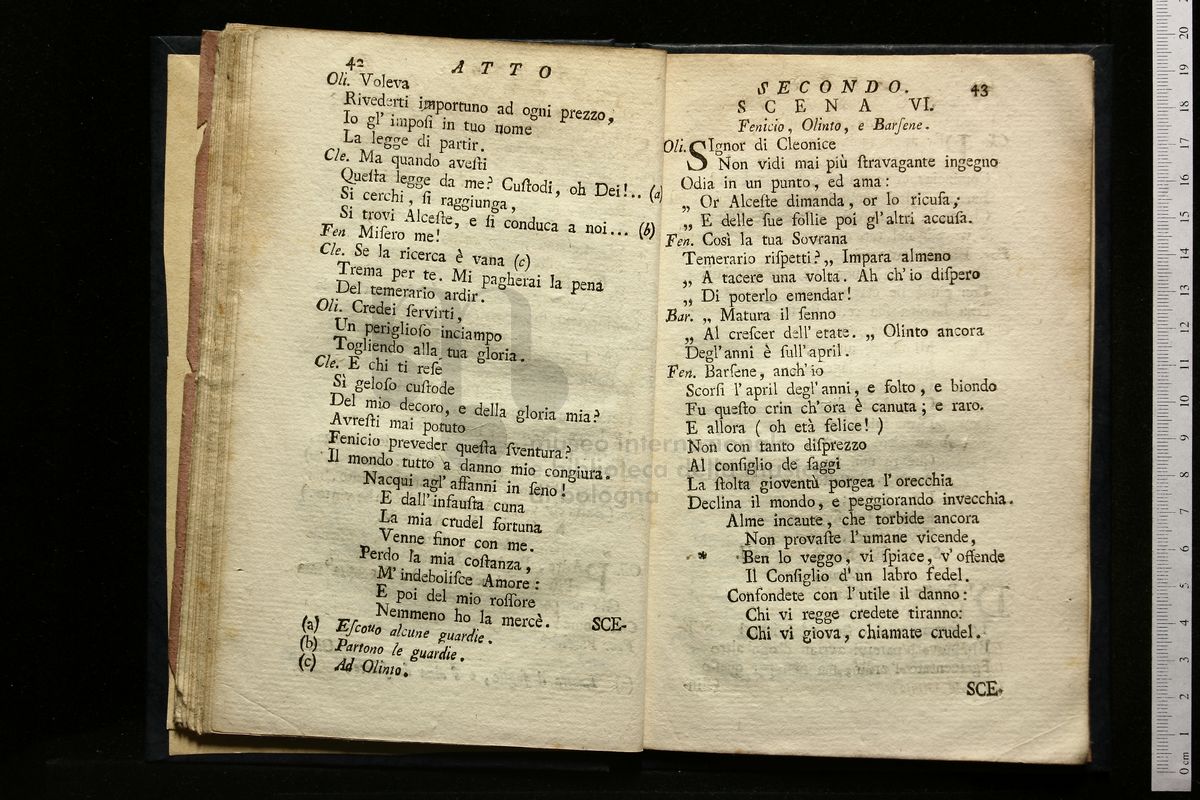 42 ATTO
Oli. Voleva
Rivederti importuno ad ogni prezzo,
Io gl' imposi in tuo nome
La legge di partir.
Cle. Ma quando avesti
Questa legge da me? Custodi, oh Dei!.. (a)
Si cerchi, si raggiunga,
Si trovi Alceste, e si conduca a noi... (b)
Fen Misero me!
Cle. Se la ricerca è vana (c)
Trema per te. Mi pagherai la pena
Del temerario ardir.
Oli. Credei servirti,
Un periglioso inciampo
Togliendo alla tua gloria.
Cle. E chi ti rese
Sì geloso custode
Del mio decoro, e della gloria mia?
Avresti mai potuto
Fenicio preveder questa sventura?
Il mondo tutto a danno mio congiura.
Nacqui agl' affanni in seno!
E dall' infausta cuna
La mia crudel fortuna
Venne finor con me.
Perdo la mia costanza,
M' indebolisce Amore:
E poi del mio rossore
Nemmeno ho la mercè.
SCE-
(a) Escono alcune guardie.
(b) Partono le guardie.
(c) Ad Olinto.
SECONDO. 43
SCENA VI.
Fenicio, Olinto, e Barsene.
Oli. SIgnor di Cleonice
Non vidi mai più stravagante ingegno
Odia in un punto, ed ama:
„ Or Alceste dimanda, or lo ricusa,
„ E delle sue follie poi gl' altri accusa.
Fen. Così la tua Sovrana
Temerario rispetti? „ Impara almeno
„ A tacere una volta. Ah ch' io dispero
„ Di poterlo emendar!
Bar. „ Matura il senno
„ Al crescer dell' etate. „ Olinto ancora
Degl' anni è sull' april.
Fen. Barsene, anch' io
Scorsi l' april degl' anni, e folto, e biondo
Fu questo crin ch' ora è canuta; e raro.
E allora ( oh età felice! )
Non con tanto disprezzo
Al consiglio de saggi
La stolta gioventù porgea l' orecchia
Declina il mondo, e peggiorando invecchia.
Alme incaute, che torbide ancora
Non provaste l' umane vicende,
* Ben lo veggo, vi spiace, v' offende
Il Consiglio d' un labro fedel.
Confondete con l' utile il danno:
Chi vi regge credete tiranno:
Chi vi giova, chiamate crudel.
SCE-
museo internazionale
biblioteca della musica
bologna